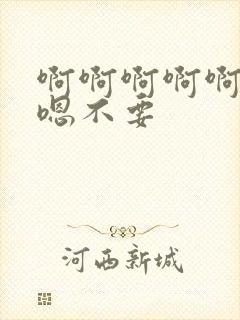 啊啊啊啊啊
嗯不要
河西新城